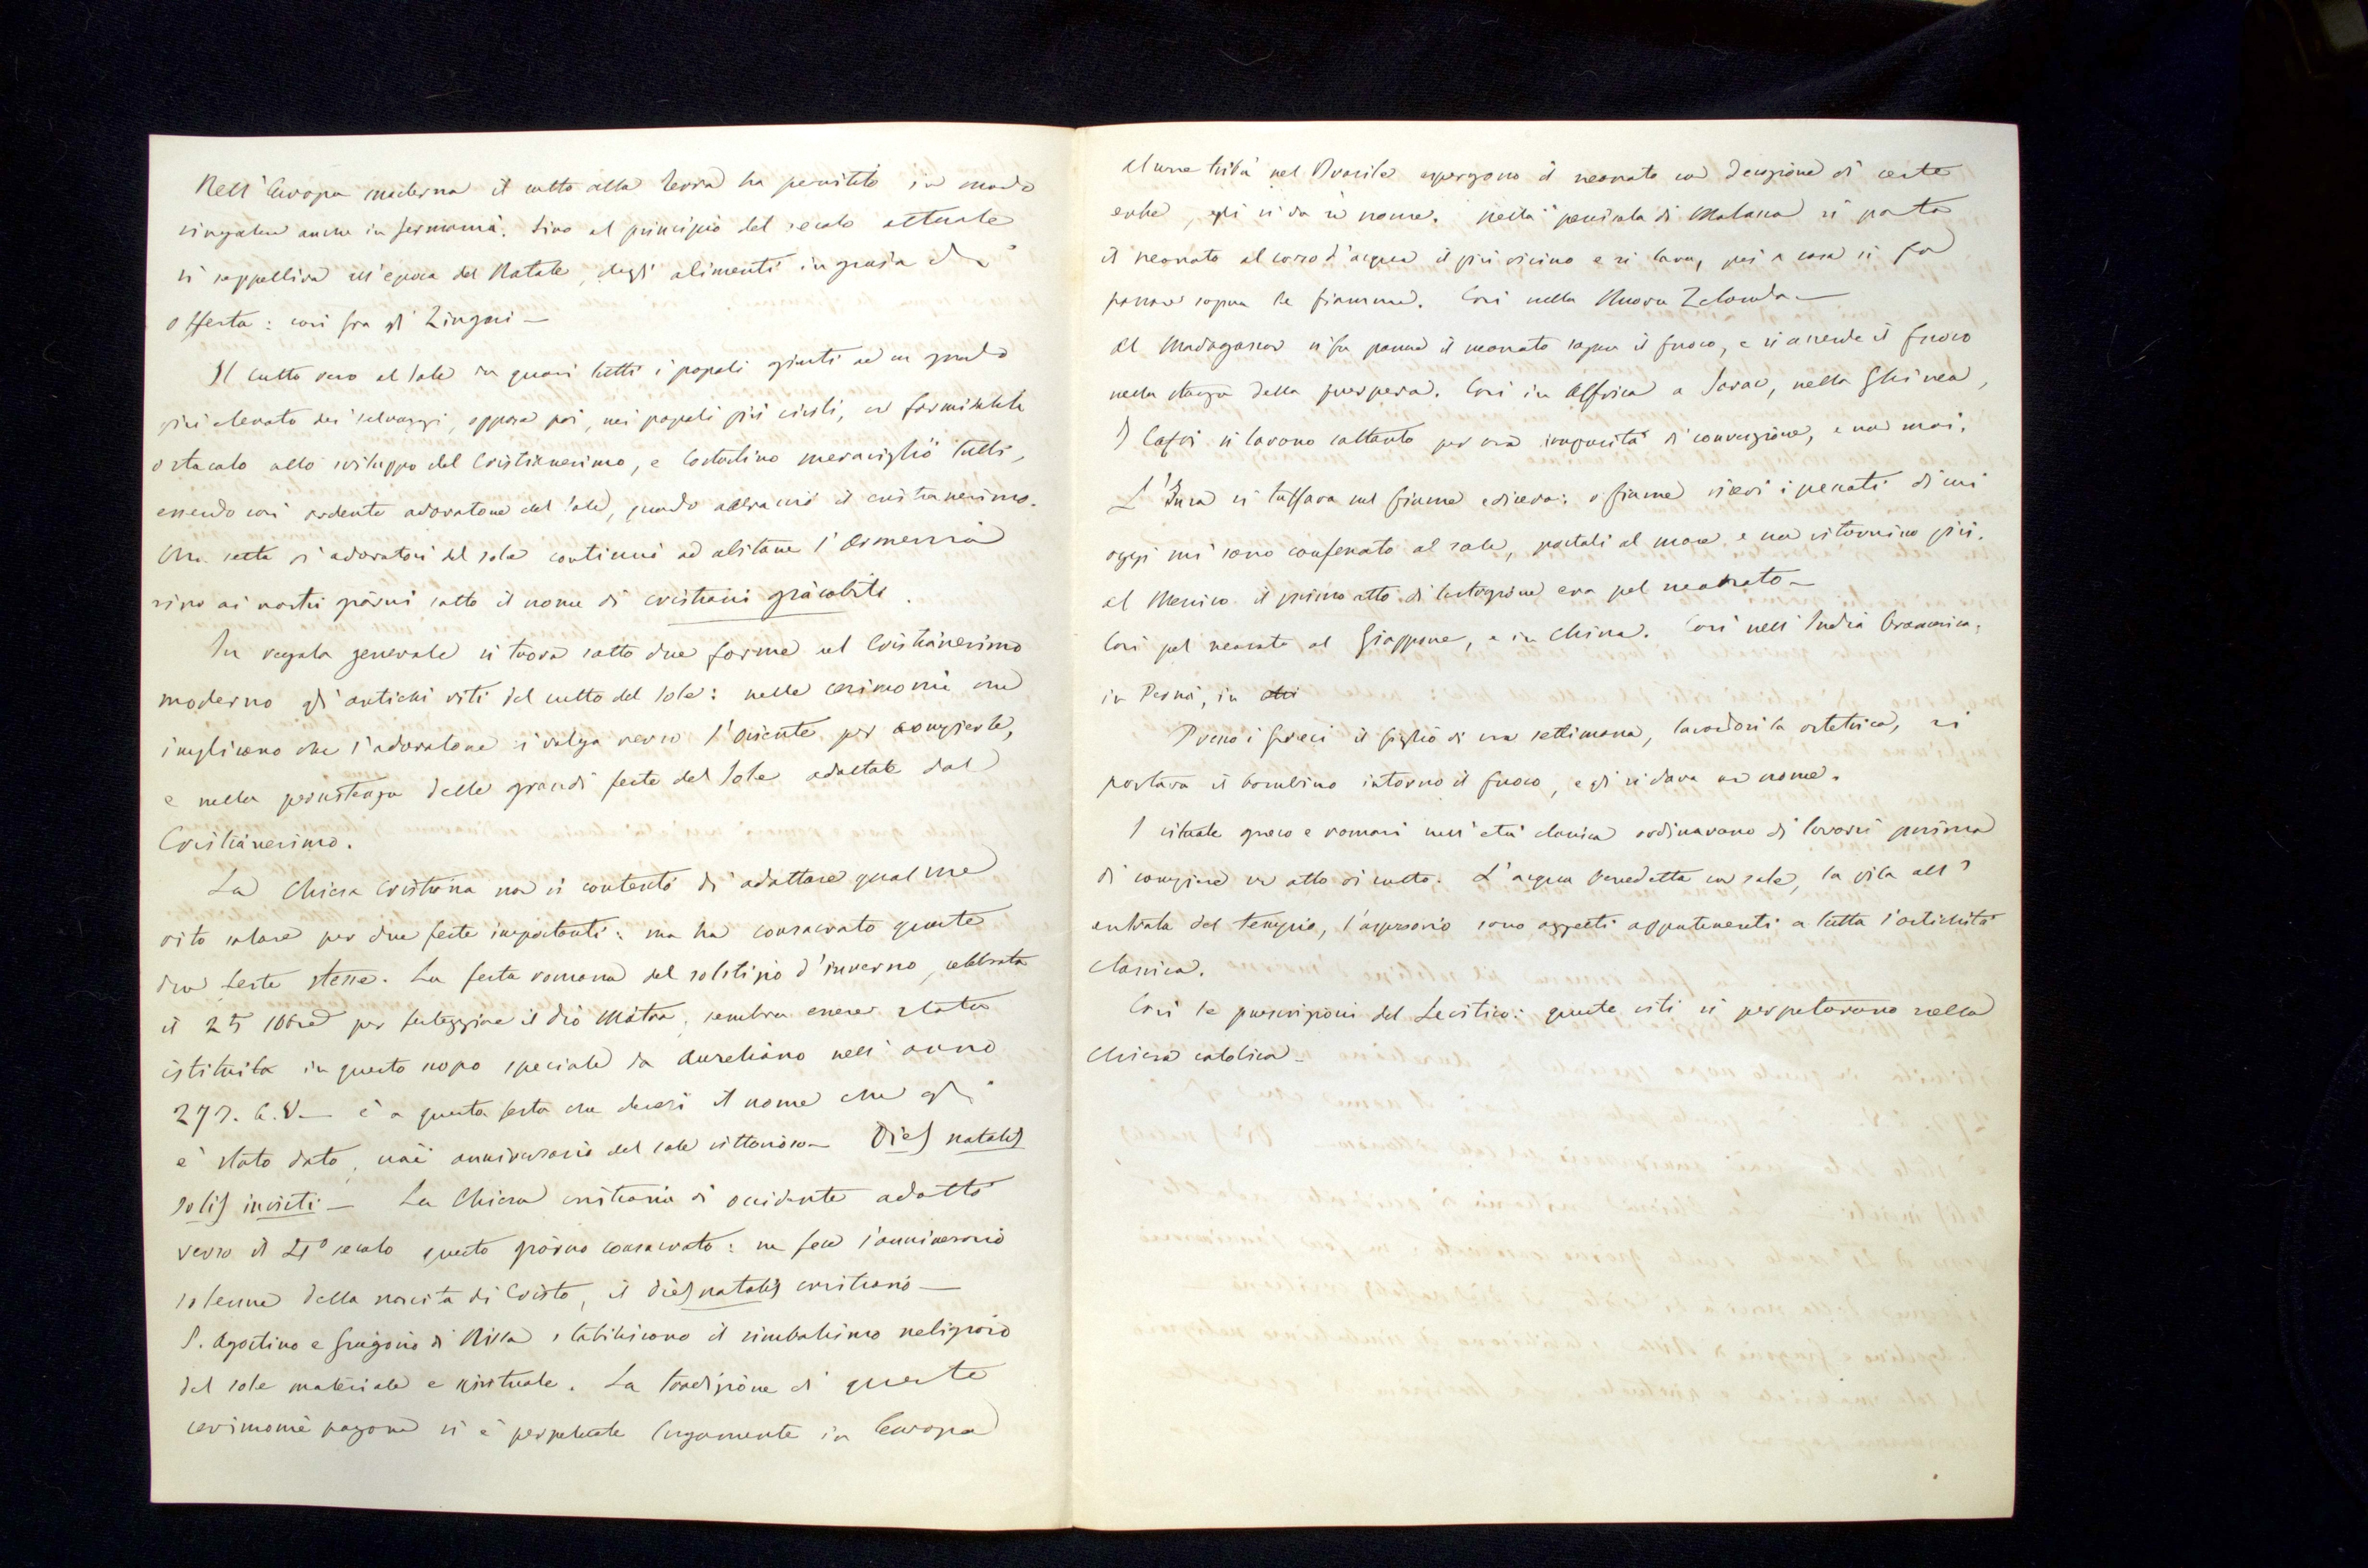 Nell' Europa moderna il culto alla terra ha persistito in modo
singolare anche in Germania. Sino al principio del secolo attuale
si seppelliva all'epoca del Natale, degli alimenti in guisa di
offerta: così fra gli Zingari —
Il culto reso al sole da quasi tutti i popoli giunti ad un grado
più elevato dei selvaggi, oppose poi, nei popoli più civili, un formidabile
ostacolo allo sviluppo del Cristianesimo, e Costantino meravigliò tutti,
essendo così ardente adoratore del sole, quando abbracciò il cristianesimo.
Una setta di adoratori del sole continuò ad abitare l'Armenia
sino ai nostri giorni sotto il nome di cristiani giacobiti.
In regola generale si trova sotto due forme nel Cristianesimo
moderno gli antichi riti del culto del sole: nelle cerimonie che
implicano che l'adoratore si volga verso l'Oriente per compierle,
e nella persistenza delle grandi feste del Sole adattate dal
Cristianesimo.
La Chiesa cristiana non si contentò di adattare qualche
rito solare per due feste importanti: ma ha consacrato queste
due feste stesse. La festa romana del solstizio d'inverno, celebrata
il 25 10bre per festeggiare il dio Mitra, sembra essere stata
istituita in questo scopo speciale da Aureliano nell' anno
273. C.V. — è a questa festa che devesi il nome che gli
è stato dato, cioè anniversario del sole vittorioso — Dies natalis
solis invicti — La Chiesa cristiana di occidente adottò
verso il 4° secolo questo giorno consacrato: ne fece l'anniversario
solenne della nascita di Cristo, il dies natalis cristiano —
S. Agostino e Gregorio di Nissa stabiliscono il simbolismo religioso
del sole materiale e spirituale. La tradizione di queste
cerimonie pagane si è perpetuate lungamente in Europa
Alcune tribù nel Brasile aspergono il neonato con decozione di certe
erbe, e gli si da un nome. Nella penisola di Malacca si porta
il neonato al corso d'acqua il più vicino e si lava, poi a casa si fa
passare sopra le fiamme. Così nella Nuova Zelanda —
Al Madagascar si fa passare il neonato sopra il fuoco, e si accende il fuoco
nella stanza della puerpera. Così in Affrica a Sarac, nella Ghinea,
I Cafri si lavano soltanto per una impurità di convenzione, e non mai.
L'Inca si tuffava nel fiume e diceva: o fiume ricevi i peccati di cui
oggi mi sono confessato al sole, portali al mare e non ritornino più.
Al Messico il primo atto di lustrazione era pel neonato —
Così pel neonato al Giappone, e in China. Così nell' India Bramanica,
in Persia, in
Presso i Greci il figlio di una settimana, lavandosi la ostetrica, si
portava il bambino intorno il fuoco, e gli si dava un nome.
I rituale greco e romani nell' età classica ordinavano di lavarsi prima
di compiere un atto di culto. L'acqua benedetta con sale, la pila all'
entrata del tempio, l'aspersorio sono oggetti appartenenti a tutta l'antichità
classica.
Così le prescrizioni del Levitico: queste riti si perpetuarono nella
Chiesa catolica —